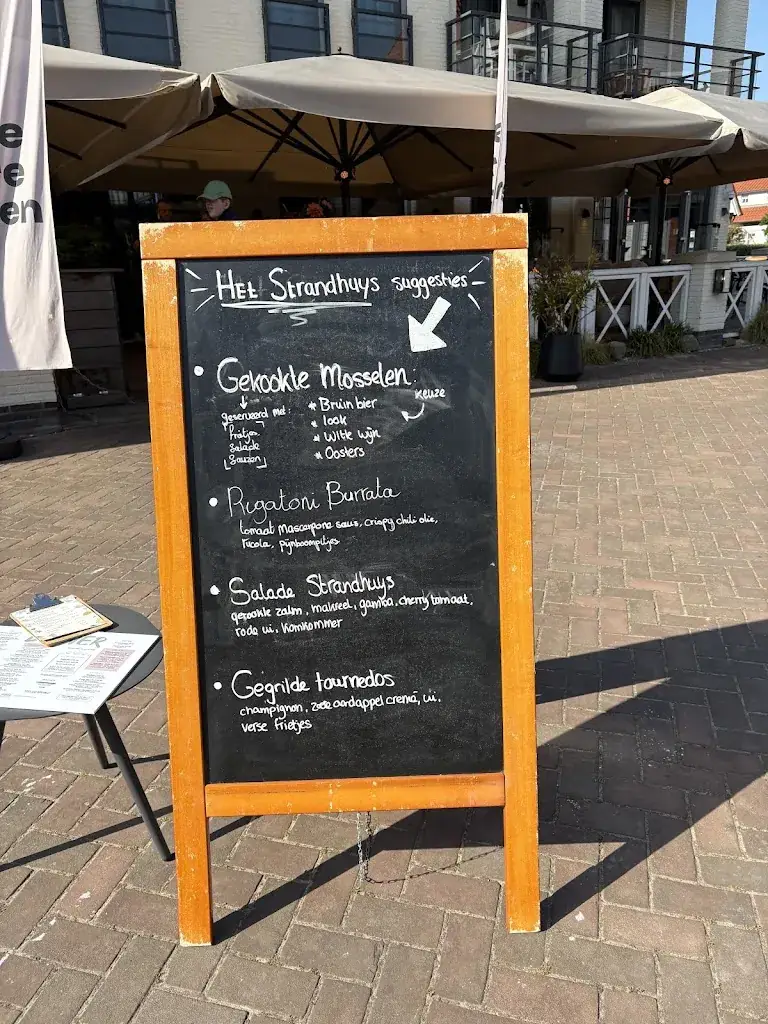 e
re
en
Het Strandhuys suggesties
• Gekookte Mosselen:
geserveerd met:
[frietjes
Salade
Sauzen]
keuze
* Bruin bier
* look
* witte wijn
* Oosters
• Rigatoni Burrata
tomaat Mascarpone saus, crispy chili olie,
rucola, pijnboompitjes
• Salade Strandhuys
gerookte zalm, makreel, gamba, cherry tomaat,
rode ui, komkommer
• Gegrilde tournedos
champignon, zoete aardappel crème, ui,
verse frietjes